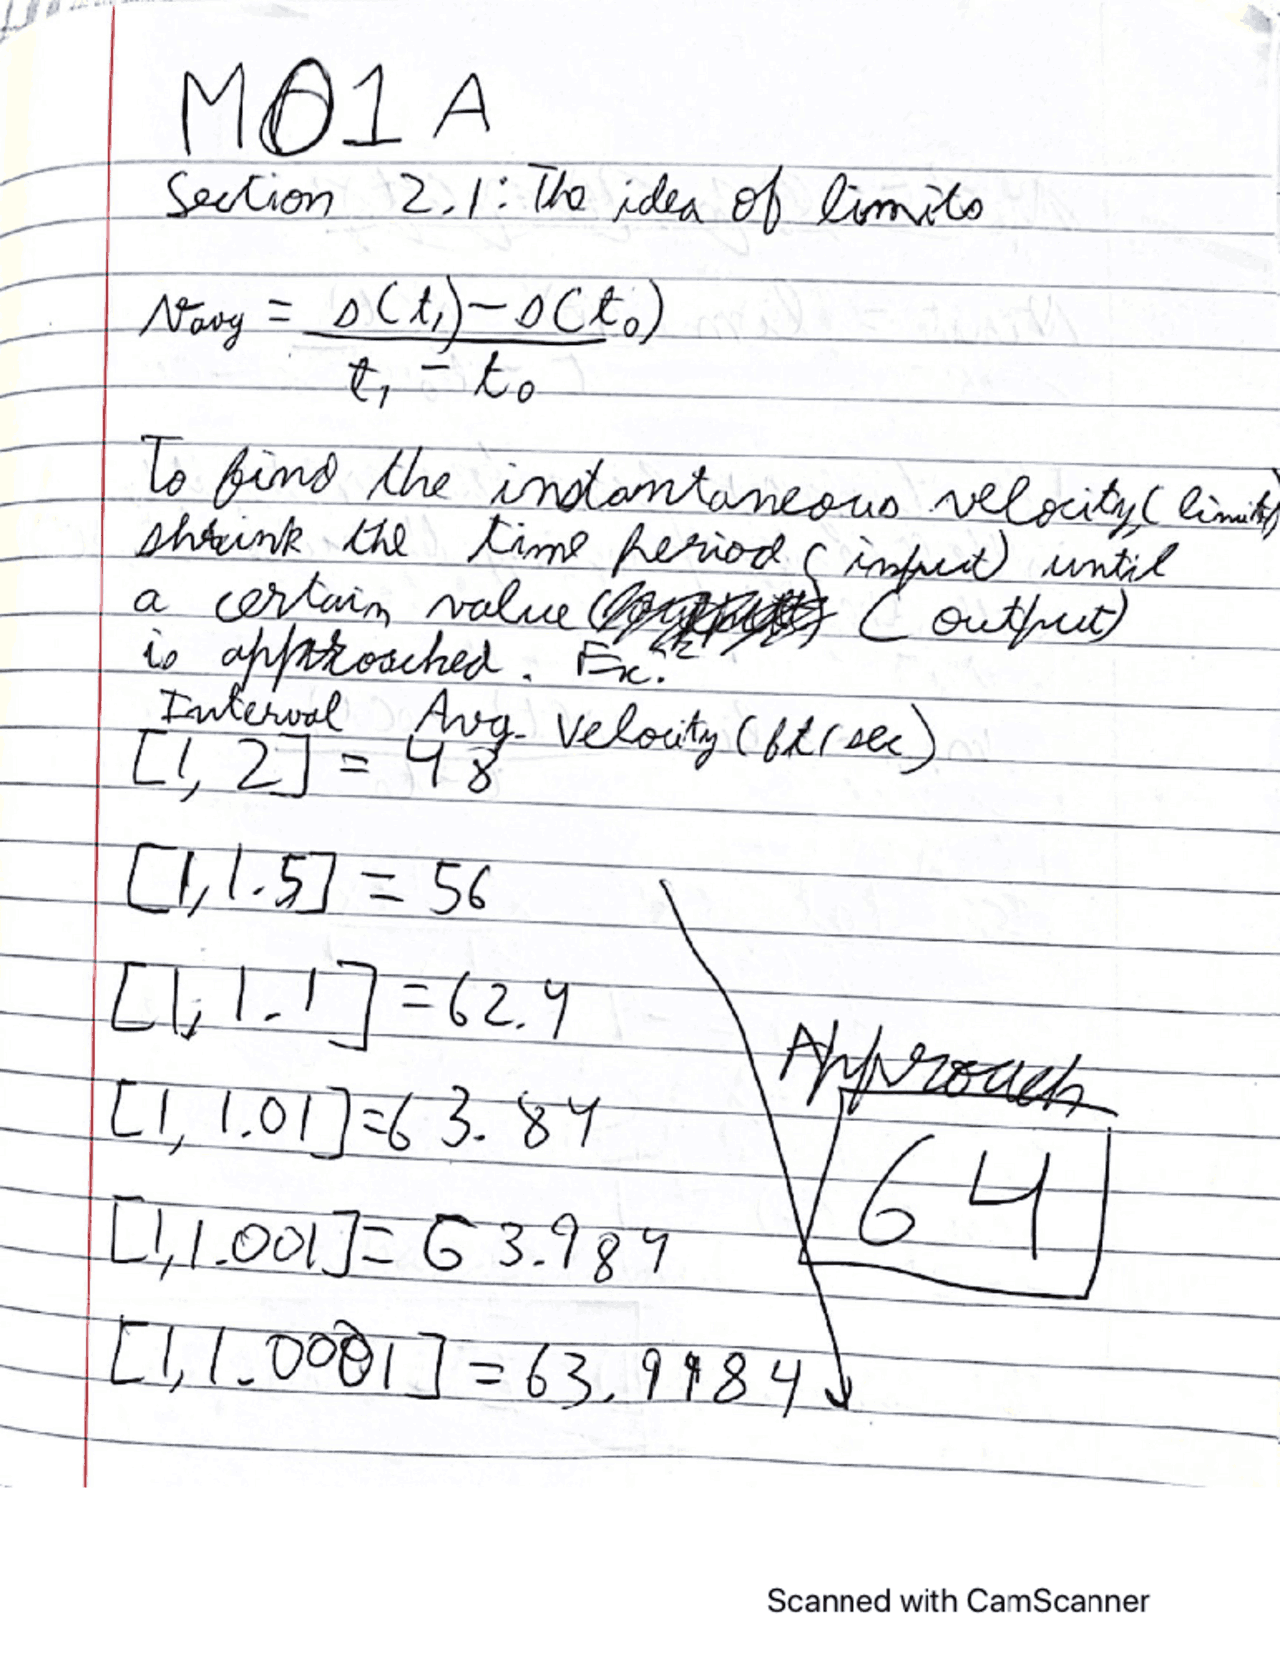 M01A
Section 2.1: The idea of limits
Vavg = s(t₁) - s(t₀)
t₁ - t₀
To find the instantaneous velocity, (limits)
shrink the time period (input) until
a certain value (output)
is approached. Ex:
Interval Avg. Velocity (ft/sec)
[1, 2] = 48
[1, 1.5] = 56
[1, 1.1] = 62.4
Approach
[1, 1.01] = 63.84
64
[1, 1.001] = 63.984
[1, 1.0001] = 63.9984
Scanned with CamScanner